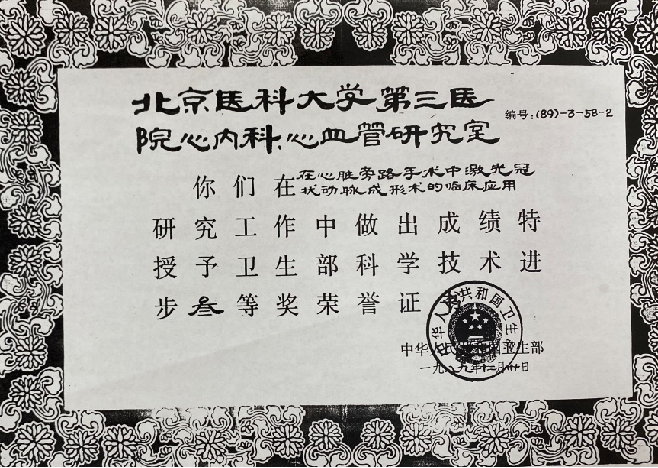 北京医科大学第三医
院心内科、心血管研究室
编号:(89)-3-58-2
你们在在心脏旁路手术中激光冠
状动脉成形术的临床应用
研究工作中做出成绩特
授予卫生部科学技术进
步叁等奖荣誉证
中华人民共和国卫生部
一九八九年十二月 日